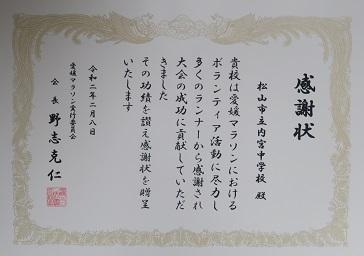 感謝状
松山市立内宮中学校 殿
貴校は愛媛マラソンにおける
ボランティア活動に尽力し
多くのランナーから感謝され
大会の成功に貢献していただ
きました
その功績を讃え感謝状を贈呈
いたします
令和二年二月八日
愛媛マラソン実行委員会
会長 野志克仁